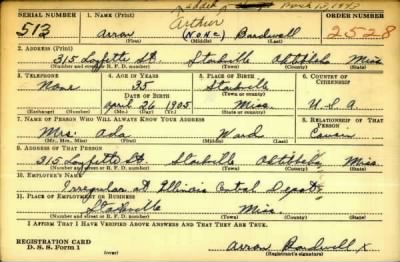 added March 12, 1943
SERIAL NUMBER 1. NAME (Print) ORDER NUMBER
Arthur
513 Arron (N.O.N.E.) Bardwell 2528
(First) (Middle) (Last)
2. ADDRESS (Print)
315 Laffette St. Starkville Oktibbeha Miss
(Number and street or R. F. D. number) (Town) (County) (State)
3. TELEPHONE 4. AGE IN YEARS 5. PLACE OF BIRTH 6. COUNTRY OF CITIZENSHIP
None 35 Starkville
DATE OF BIRTH (Town or county)
april 26 1905 Miss. U.S.A
(Exchange) (Number) (Mo.) (Day) (Yr.) (State or country)
7. NAME OF PERSON WHO WILL ALWAYS KNOW YOUR ADDRESS 8. RELATIONSHIP OF THAT PERSON
Mrs. Ada Ward Cousin
(Mr., Mrs., Miss) (First) (Middle) (Last)
9. ADDRESS OF THAT PERSON
315 Laffette St. Starkville Oktibbeha Miss.
(Number and street or R. F. D. number) (Town) (County) (State)
10. EMPLOYER'S NAME
Irregular at Illinois Central Depot
11. PLACE OF EMPLOYMENT OR BUSINESS
Starkville Miss.
(Number and street or R. F. D. number) (Town) (County) (State)
I AFFIRM THAT I HAVE VERIFIED ABOVE ANSWERS AND THAT THEY ARE TRUE.
REGISTRATION CARD
D. S. S. Form 1
Arron Bardwell X
(Registrant's signature)